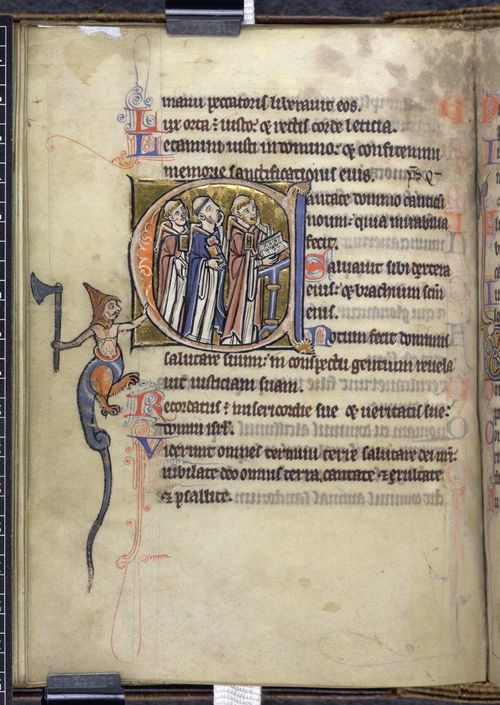 manu peccatoris liberauit eos.
Lux orta ÷ iusto: ⁊ rectis corde leticia.
Letamini iusti in domino: ⁊ confitemini
memorie sanctificationis eius.
Cantate domino canticū
nouum: quia mirabilia
fecit.
Saluauit sibi dextera
eius: ⁊ brachium scm̄
eius.
Notum fecit dominus
salutare suum: in conspectu gentium reuela
uit iusticiam suam.
Recordatus ÷ misericordie sue ⁊ ueritatis sue:
domui isrl̄.
Viderunt omnes termini terre salutare dei nr̄i.
iubilate deo omnis terra, cantate ⁊ exultate
⁊ psallite.